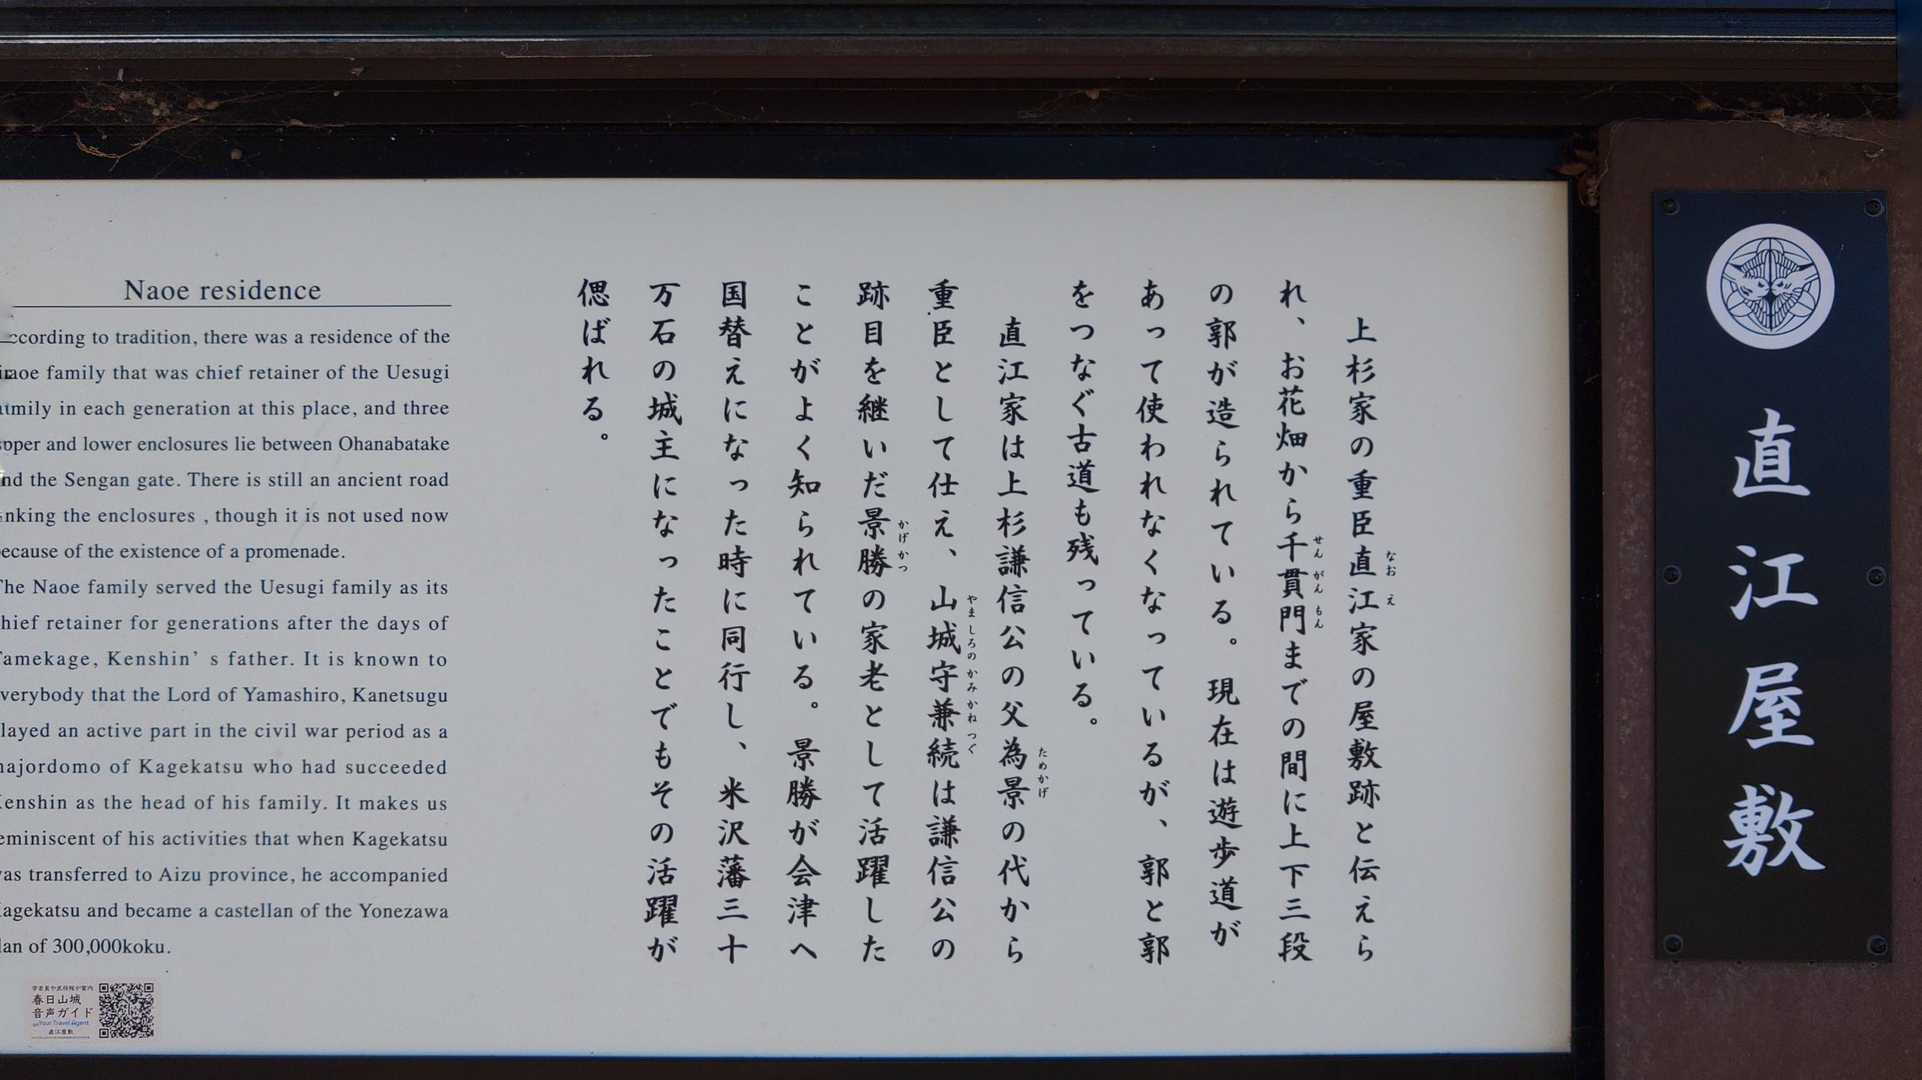 直江屋敷
上杉家の重臣直江家の屋敷跡と伝えら
なおえ
れ、お花畑から千貫門までの間に上下三段
せんがんもん
の郭が造られている。現在は遊歩道が
あって使われなくなっているが、郭と郭
をつなぐ古道も残っている。
直江家は上杉謙信公の父為景の代から
ためかげ
重臣として仕え、山城守兼続は謙信公の
やましろのかみかねつぐ
跡目を継いだ景勝の家老として活躍した
かげかつ
ことがよく知られている。景勝が会津へ
国替えになった時に同行し、米沢藩三十
万石の城主になったことでもその活躍が
偲ばれる。
Naoe residence
ccording to tradition, there was a residence of the
aoe family that was chief retainer of the Uesugi
mily in each generation at this place, and three
pper and lower enclosures lie between Ohanabatake
nd the Sengan gate. There is still an ancient road
nking the enclosures , though it is not used now
ecause of the existence of a promenade.
he Naoe family served the Uesugi family as its
hief retainer for generations after the days of
amekage, Kenshin' s father. It is known to
verybody that the Lord of Yamashiro, Kanetsugu
layed an active part in the civil war period as a
ajordomo of Kagekatsu who had succeeded
enshin as the head of his family. It makes us
eminiscent of his activities that when Kagekatsu
as transferred to Aizu province, he accompanied
agekatsu and became a castellan of the Yonezawa
lan of 300,000koku.
春日山城
音声ガイド
Your Travel Agent
直江屋敷